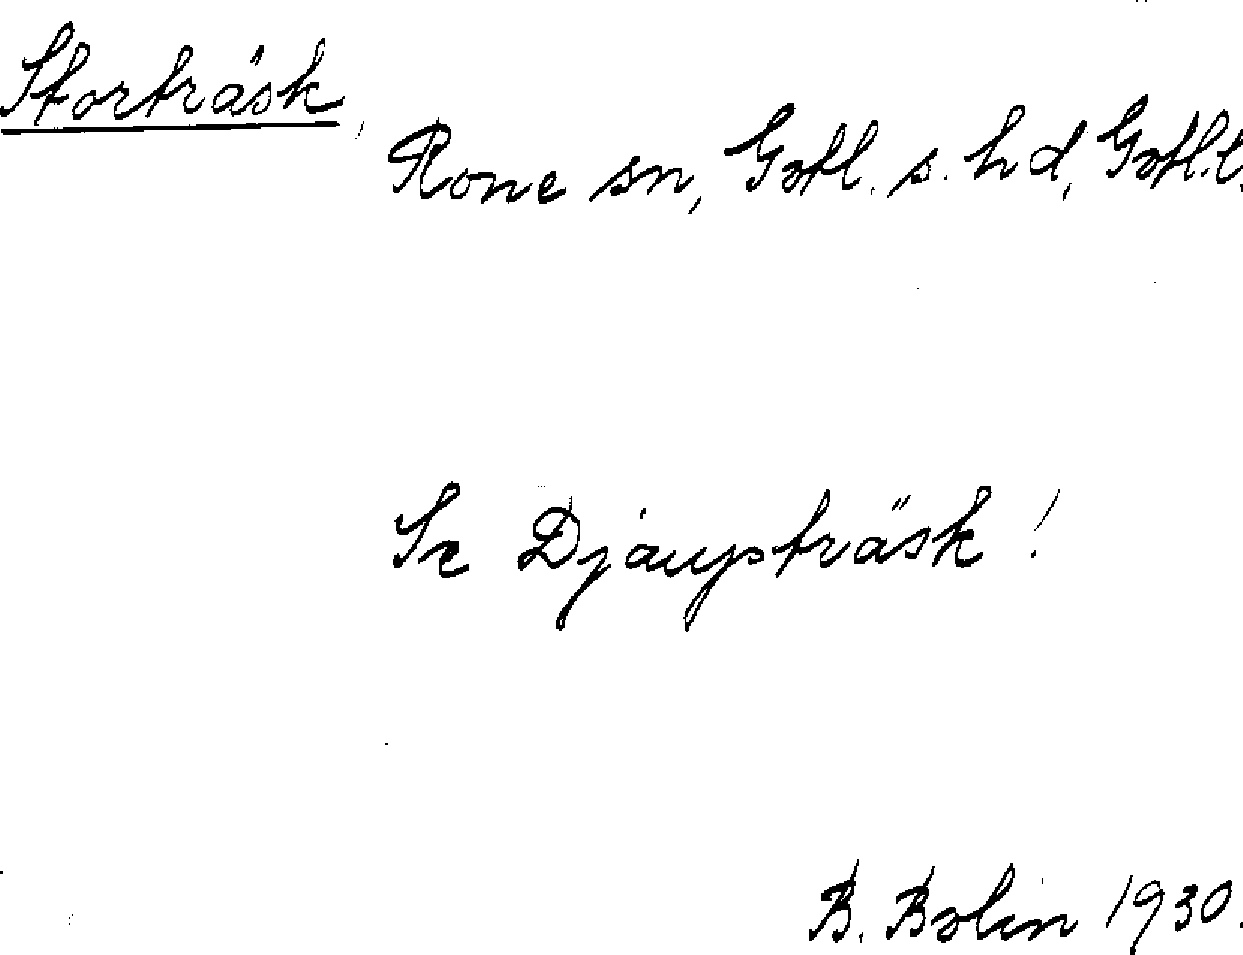 Storträsk,
Rone sn, Gotl. s. hd, Gotl. l.
Se Djaupträsk!
B. Bolin 1930.